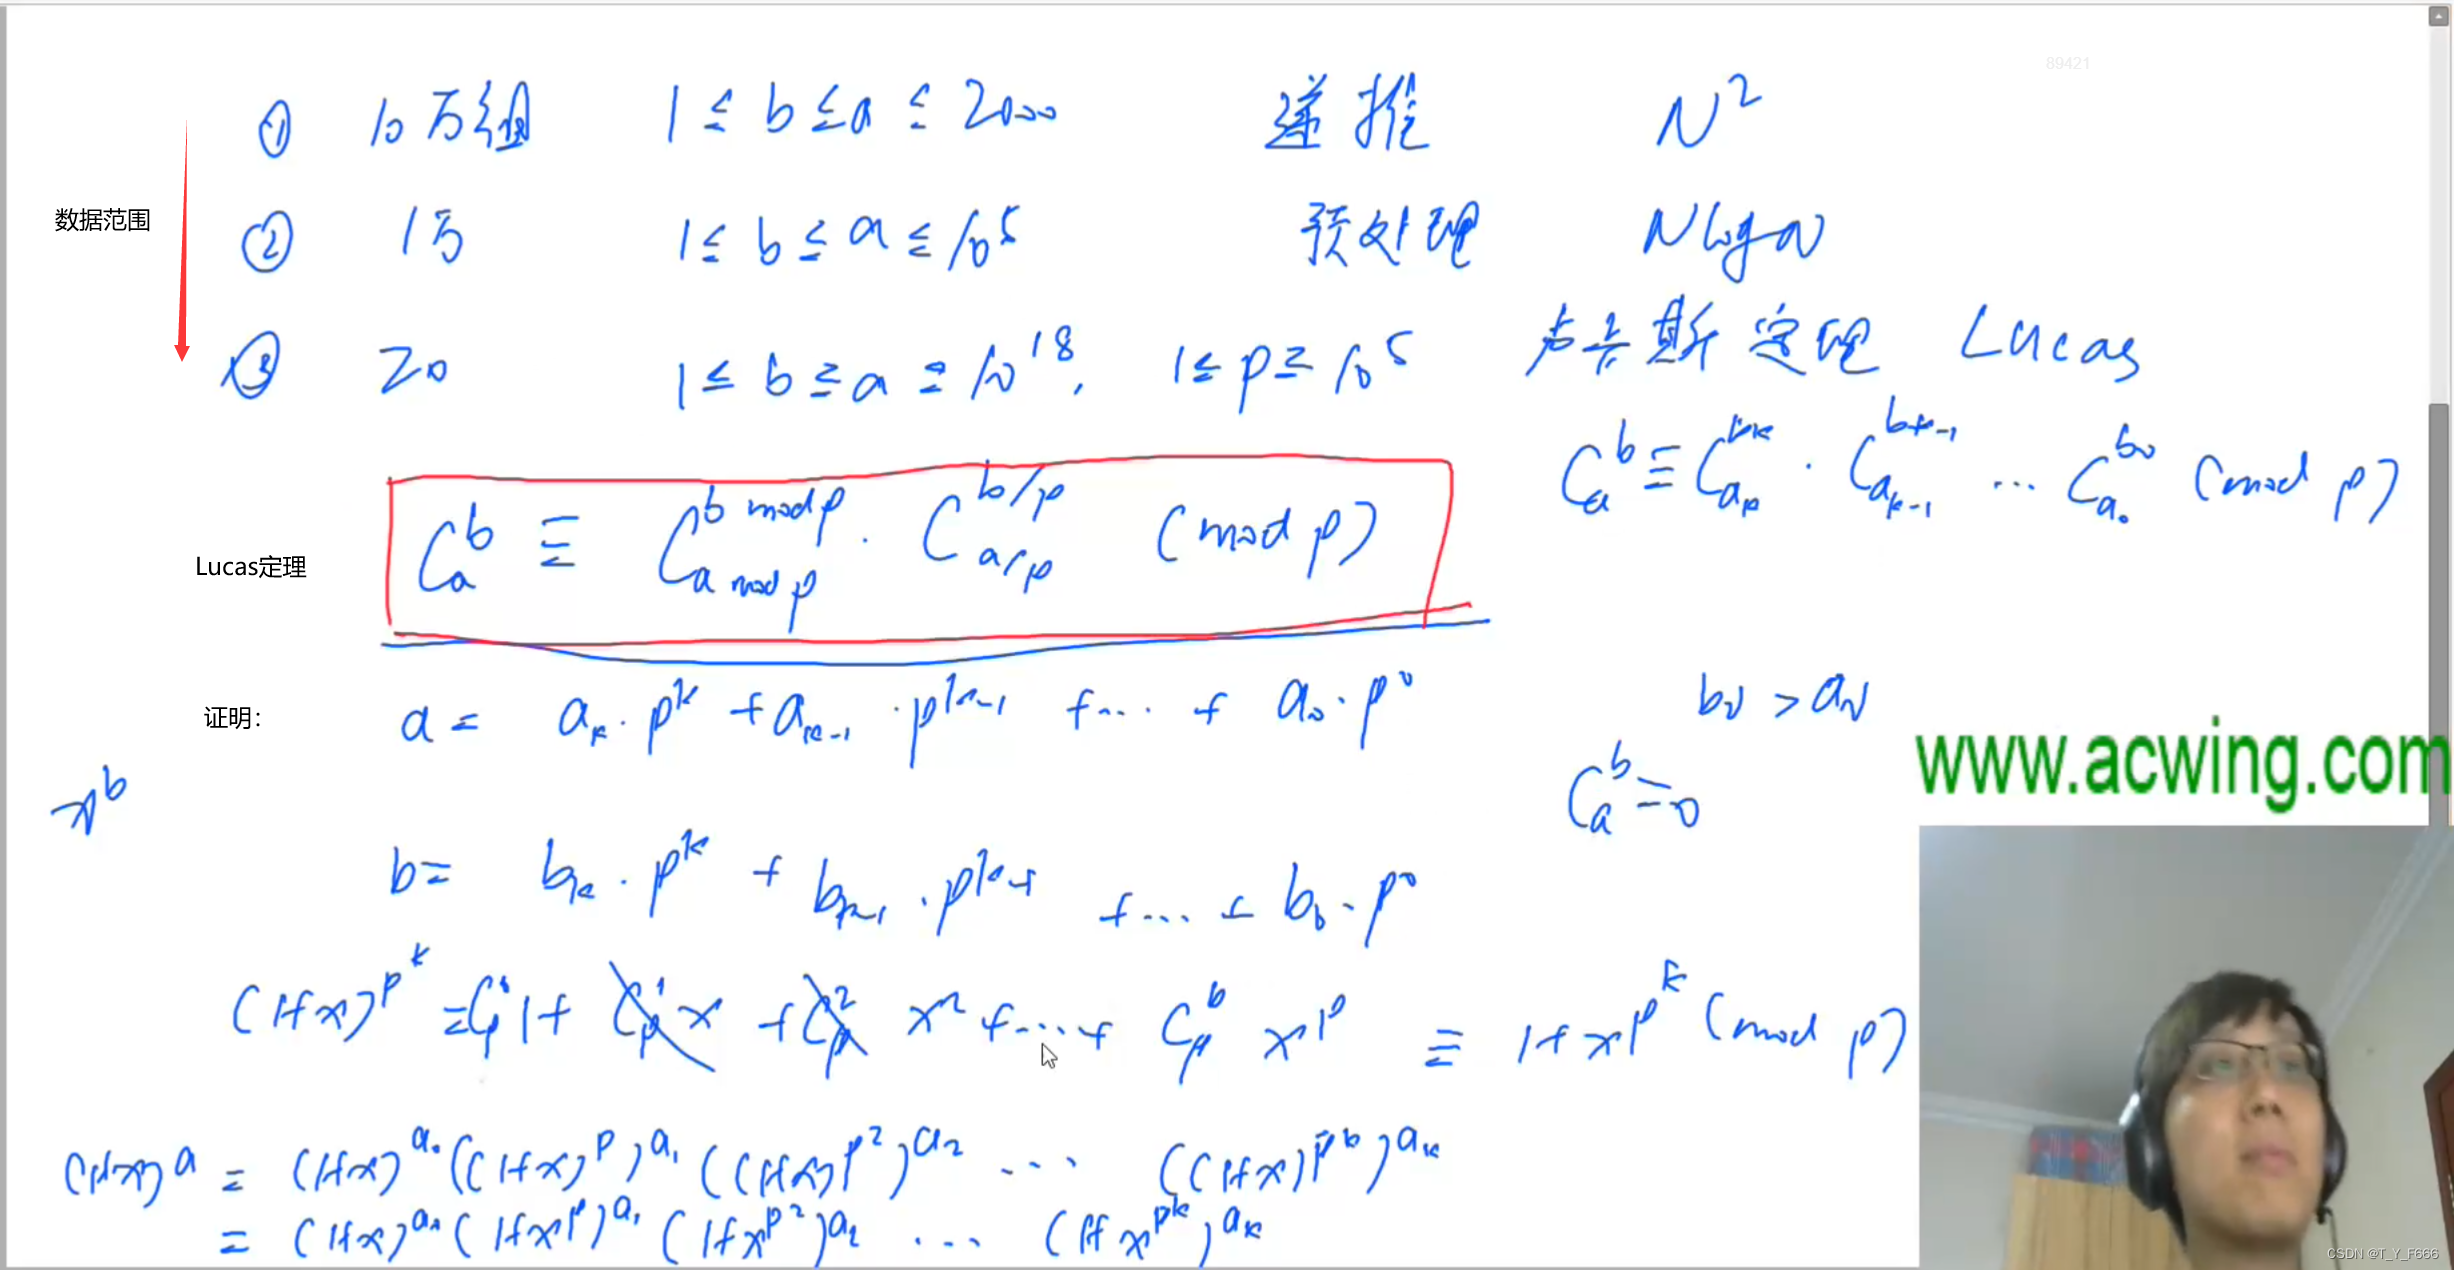 89421
① 10万组 1 ≤ b ≤ a ≤ 2000 递推 N²
数据范围
② 1万 1 ≤ b ≤ a ≤ 10⁵ 预处理 NlogN
③ 20 1 ≤ b ≤ a ≤ 10¹⁸, 1 ≤ p ≤ 10⁵ 卢卡斯定理 Lucas
C_a^b ≡ C_{a_k}^{b_k} · C_{a_{k-1}}^{b_{k-1}} ... C_{a_0}^{b_0} (mod p)
Lucas定理 C_a^b ≡ C_{a mod p}^{b mod p} · C_{a/p}^{b/p} (mod p)
证明: a = a_k · p^k + a_{k-1} · p^{k-1} + ... + a_0 · p^0
C_a^b = 0
www.acwing.com
x^b
b = b_k · p^k + b_{k-1} · p^{k-1} + ... + b_0 · p^0
(1+x)^{p^k} = C_p^0 1 + C_p^1 x + C_p^2 x² + ... + C_p^b x^p ≡ 1 + x^{p^k} (mod p)
(1+x)^a = (1+x)^{a_0} ((1+x)^p)^{a_1} ((1+x)^{p^2})^{a_2} ... ((1+x)^{p^k})^{a_k}
= (1+x)^{a_0} (1+x^p)^{a_1} (1+x^{p^2})^{a_2} ... (1+x^{p^k})^{a_k}
CSDN @T_Y_F666